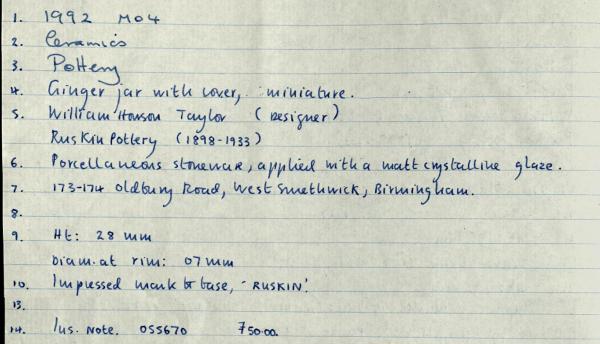 1. 1992 M04
2. Ceramics
3. Pottery
4. Ginger jar with cover, miniature.
5. William Howson Taylor (Designer)
Ruskin Pottery (1898-1933)
6. Porcellaneous stoneware, applied with a matt crystalline glaze.
7. 173-174 Oldbury Road, West Smethwick, Birmingham.
8.
9. Ht: 28 mm
Diam. at rim: 07 mm
10. Impressed mark to base, 'RUSKIN'.
13.
14. Ins. Note. 055670 750.00.